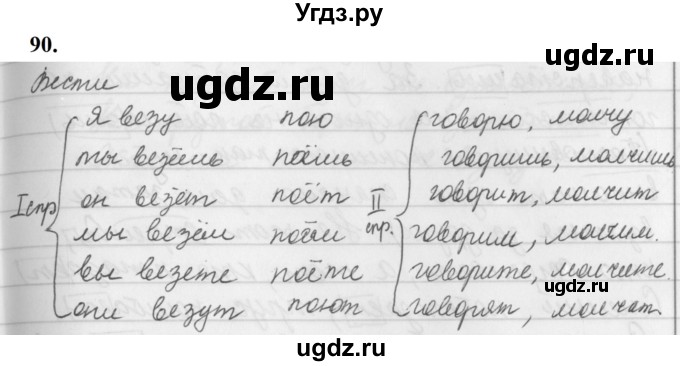 Угдз.ру
90.
Вести
ugdz.ru
ugdz.ru
I спр.
я везу пою
ты везёшь поёшь
он везёт поёт
мы везём поём
вы везете поёте
они везут поют
II спр.
говорю, молчу
говоришь, молчишь
говорит, молчит
говорим, молчим.
говорите, молчите.
говорят, молчат.
ugdz.ru